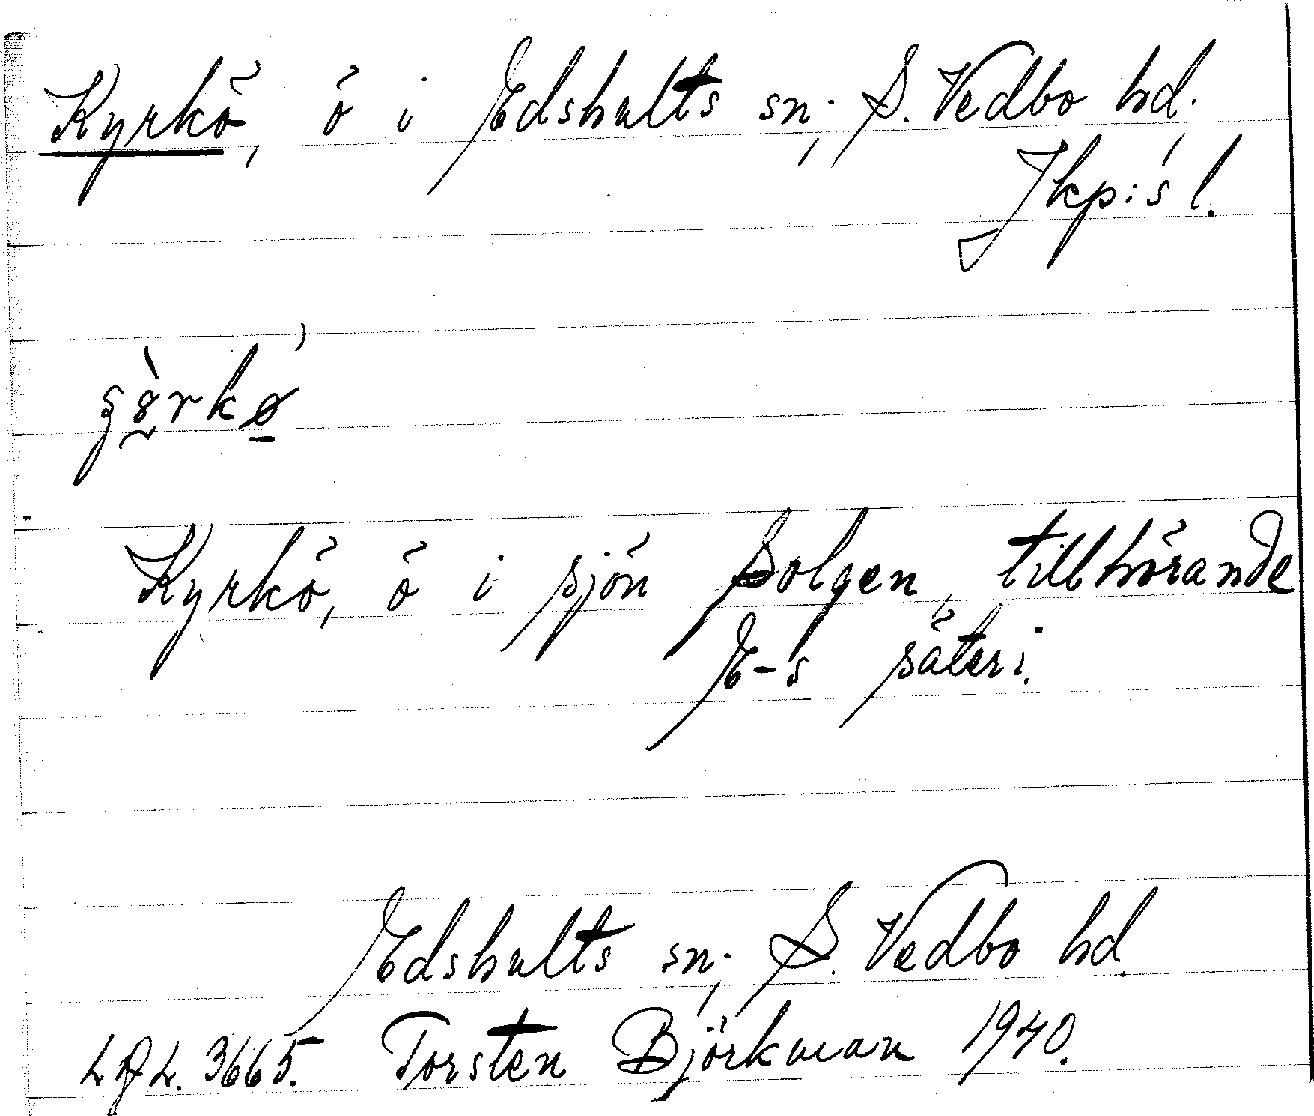 Kyrkö, ö i Edshults sn; S. Vedbo hd,
Jkp:s l.
Kyrkö, ö i sjön Solgen, tillhörande
E-s säteri.
Edshults sn; S. Vedbo hd.
3665. Torsten Björkman 1940.